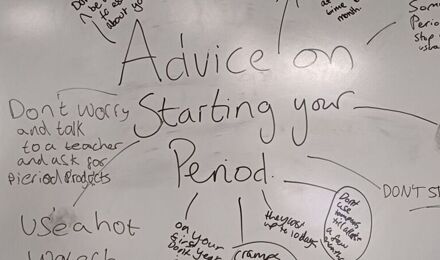 Don't
be
to as
about yo
at
time o
month.
Som
Perio
Stop
usua
Advice on
Starting your
Period.
Don't worry
and talk
to a teacher
and ask for
Pieriod Products
Use a hot
on your
first year
Don't
cramps
they last
up to 10 days
Don't
use
til after
a few
DON'T S